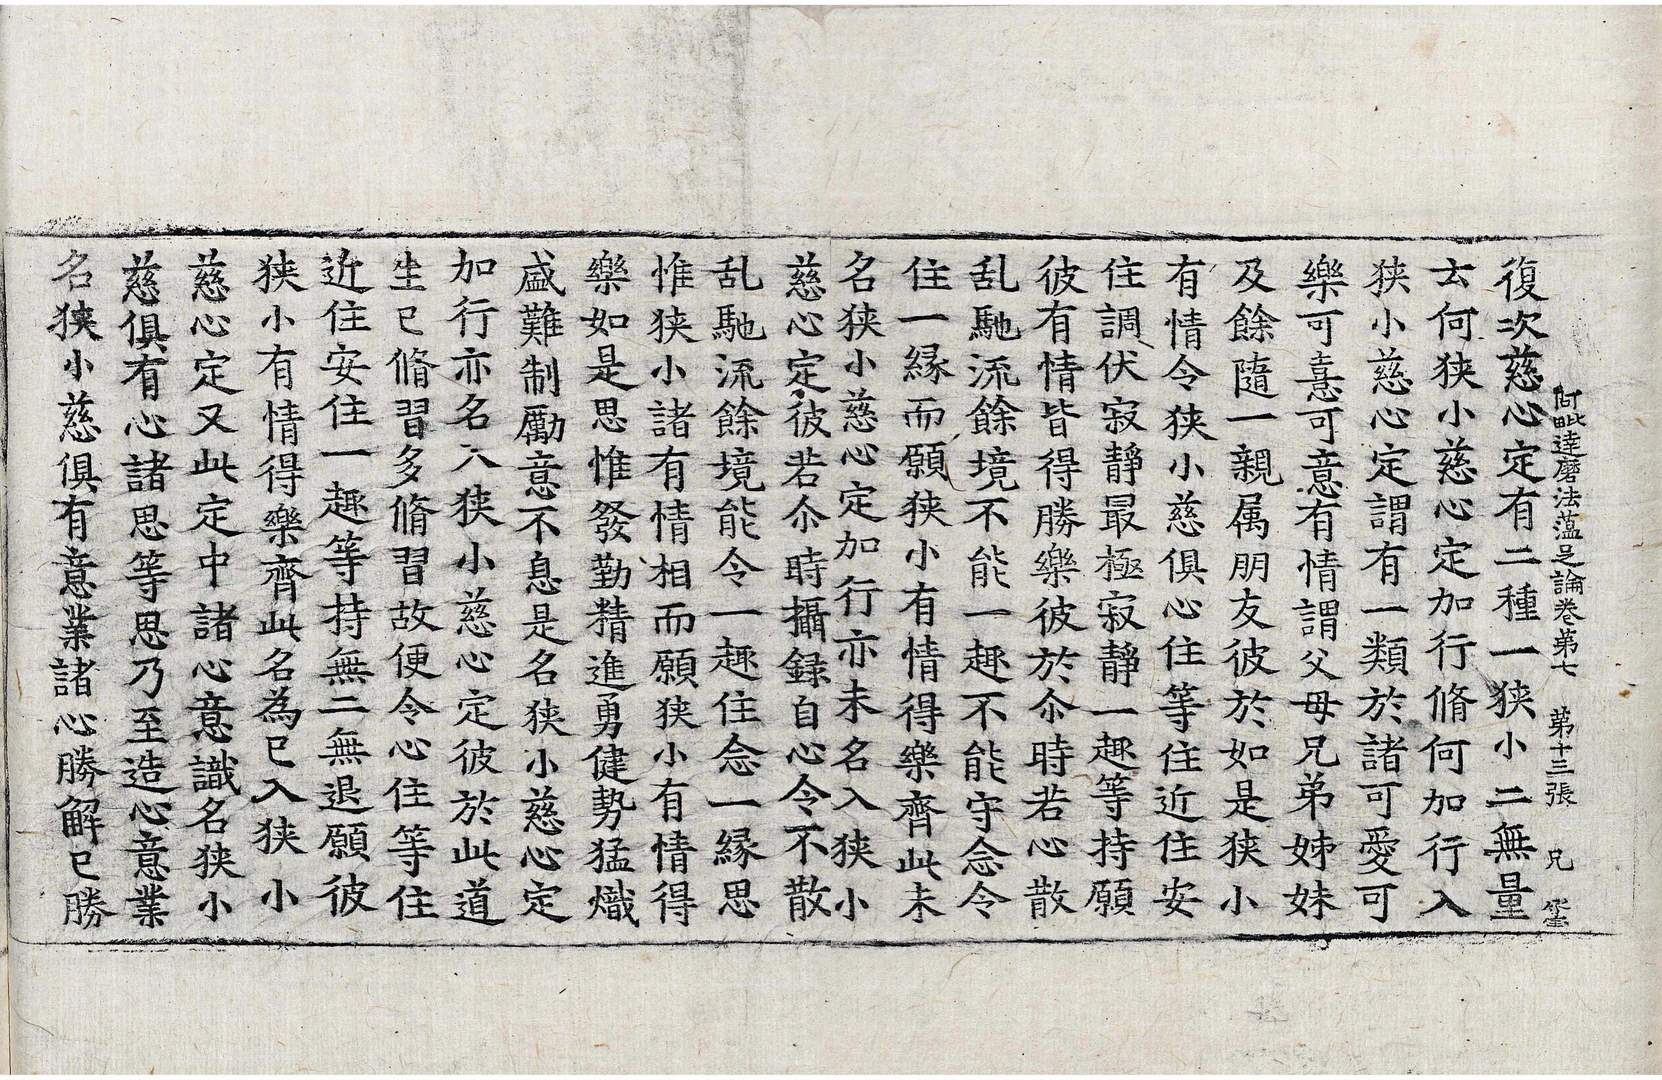 阿毗達磨法薀足論卷第七　第十三張　兄
復次慈心定有二種一狭小二無量
云何狭小慈心定加行脩何加行入
狭小慈心定謂有一類於諸可愛可
樂可憙可意有情謂父母兄弟姊妹
及餘隨一親属朋友彼於如是狭小
有情令狭小慈俱心住等住近住安
住調伏寂靜最極寂靜一趣等持願
彼有情皆得勝樂彼於尒時若心散
乱馳流餘境不能一趣不能守念令
住一緣而願狭小有情得樂齊此未
名狭小慈心定加行亦未名入狭小
慈心定彼若尒時攝録自心令不散
乱馳流餘境能令一趣住念一緣思
惟狭小諸有情相而願狭小有情得
樂如是思惟發勤精進勇健勢猛熾
盛難制勵意不息是名狭小慈心定
加行亦名入狭小慈心定彼於此道
生已脩習多脩習故便令心住等住
近住安住一趣等持無二無退願彼
狭小有情得樂齊此名為已入狭小
慈心定又此定中諸心意識名狭小
慈俱有心諸思等思乃至造心意業
名狭小慈俱有意業諸心勝解已勝